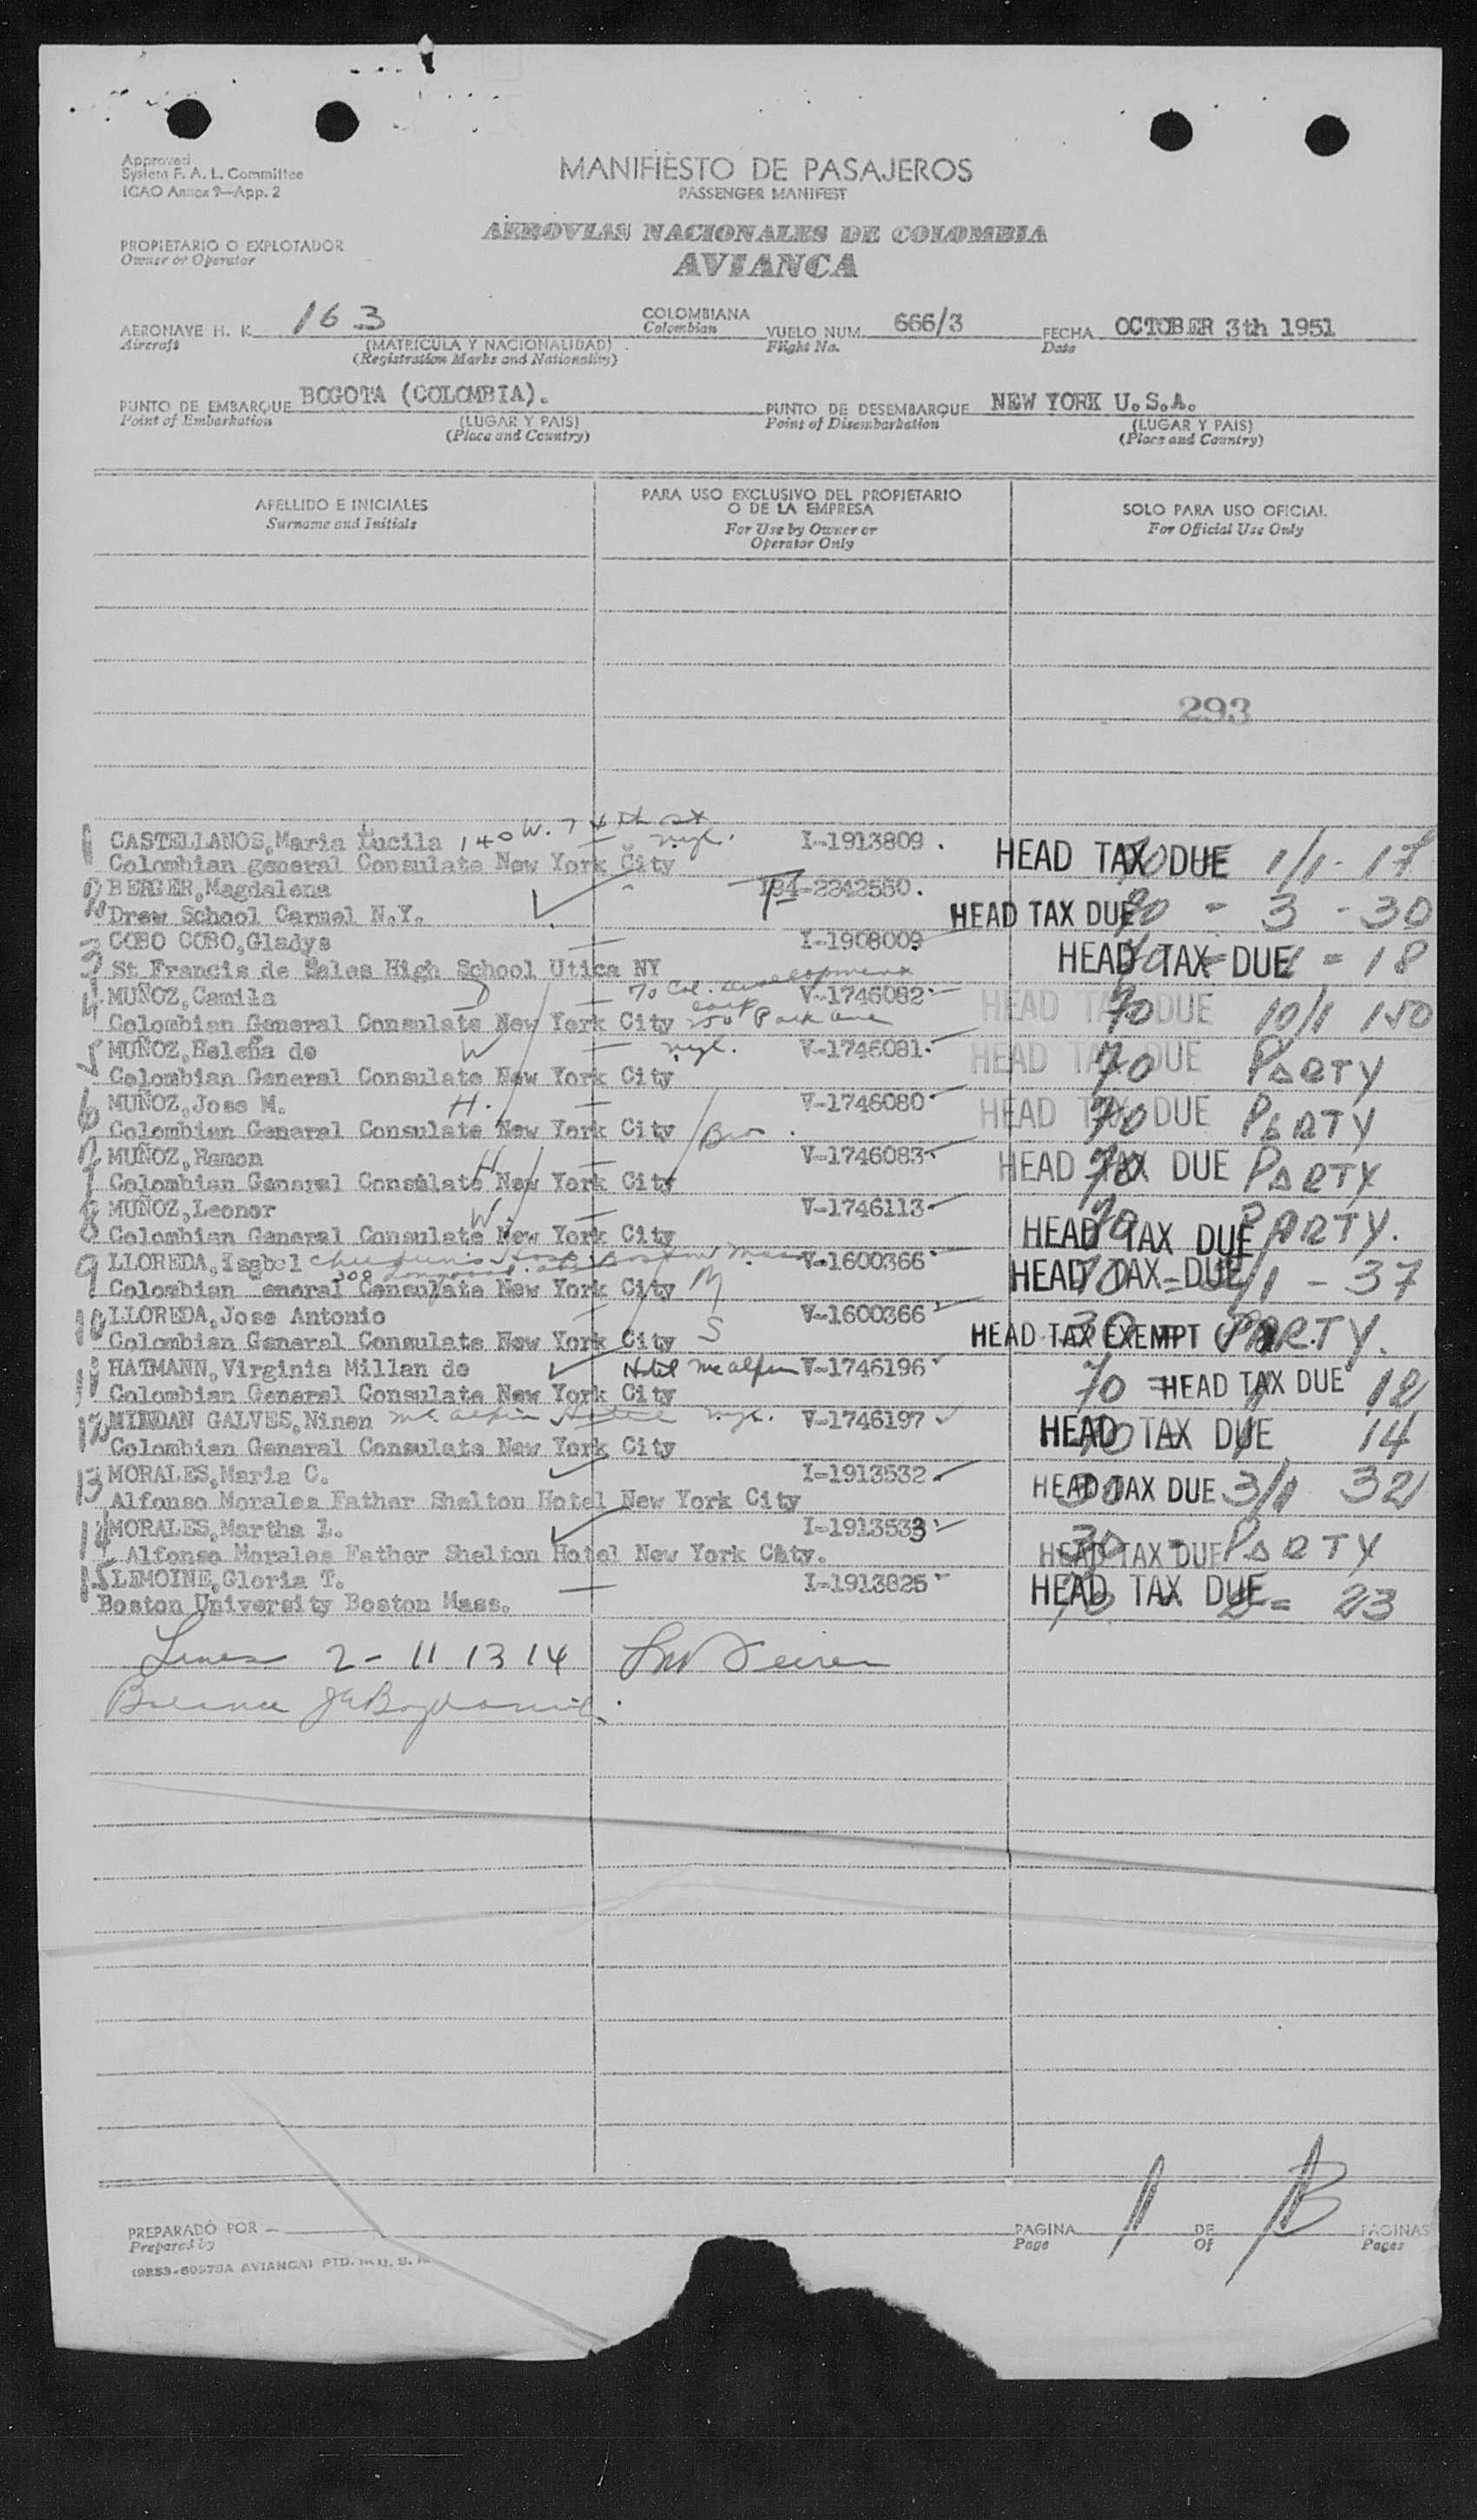 Approved
System F. A. L. Committee
ICAO Annex 9—App. 2
MANIFIESTO DE PASAJEROS
PASSENGER MANIFEST
PROPIETARIO O EXPLOTADOR
Owner or Operator
AEROVIAS NACIONALES DE COLOMBIA
AVIANCA
AERONAVE H. K. 163 COLOMBIANA VUELO NUM. 666/3 FECHA OCTOBER 3th 1951
Aircraft (MATRICULA Y NACIONALIDAD) Colombian Flight No. Date
(Registration Marks and Nationality)
PUNTO DE EMBARQUE BOGOTA (COLOMBIA). PUNTO DE DESEMBARQUE NEW YORK U.S.A.
Point of Embarkation (LUGAR Y PAIS) Point of Disembarkation (LUGAR Y PAIS)
(Place and Country) (Place and Country)
APELLIDO E INICIALES
Surname and Initials
PARA USO EXCLUSIVO DEL PROPIETARIO
O DE LA EMPRESA
For Use by Owner or
Operator Only
SOLO PARA USO OFICIAL
For Official Use Only
293
1 CASTELLANOS,Maria Lucila 140 W. 74th st nyc. I-1913809. HEAD TAX DUE 1/1 - 17
Colombian general Consulate New York City
BERGER,Magdalena 194-2242550.
Drew School Carmel N.Y. HEAD TAX DUE - 3 - 30
3 COBO COBO,Gladys I-1908009
St Francis de Sales High School Utica NY HEAD TAX DUE = 18
4 MUÑOZ,Camila D 70 Col. Development V-1746082
Colombian General Consulate New York City 250 Park ave HEAD TAX DUE 70 10/1 150
5 MUÑOZ,Helena de W nyc. V-1746081
Colombian General Consulate New York City HEAD TAX DUE 70 PARTY
6 MUÑOZ,Jose M. H. V-1746080
Colombian General Consulate New York City Bro. HEAD TAX DUE 70 PARTY
7 MUÑOZ,Ramon H V-1746083
Colombian General Consulate New York City HEAD TAX DUE 70 PARTY
8 MUÑOZ,Leonor W. V-1746113
Colombian General Consulate New York City HEAD TAX DUE 70 PARTY.
9 LLOREDA,Isabel Boston Mass V-1600366
Colombian eneral Consulate New York City M HEAD TAX DUE - 37
10 LLOREDA,Jose Antonio V-1600366
Colombian General Consulate New York City S HEAD TAX EXEMPT PARTY.
11 HATMANN,Virginia Millan de Hotel McAlpin V-1746196
Colombian General Consulate New York City 70 = HEAD TAX DUE 12
12 MINDAN GALVES,Ninon Mc Alpin Hotel nyc. V-1746197
Colombian General Consulate New York City HEAD TAX DUE 14
13 MORALES,Maria C. I-1913532
Alfonso Morales Father Shelton Hotel New York City HEAD TAX DUE 3/1 32
14 MORALES,Martha L. I-1913533
Alfonso Morales Father Shelton Hotel New York City. HEAD TAX DUE PARTY
15 LEMOINE,Gloria T. I-1913825
Boston University Boston Mass. HEAD TAX DUE = 23
Lines 2 - 11 13 14
Balance
PREPARADO POR
Prepared by
PAGINA 1 DE PAGINAS
Page Of Pages
AVIANCA) PTD. IN U. S. A.